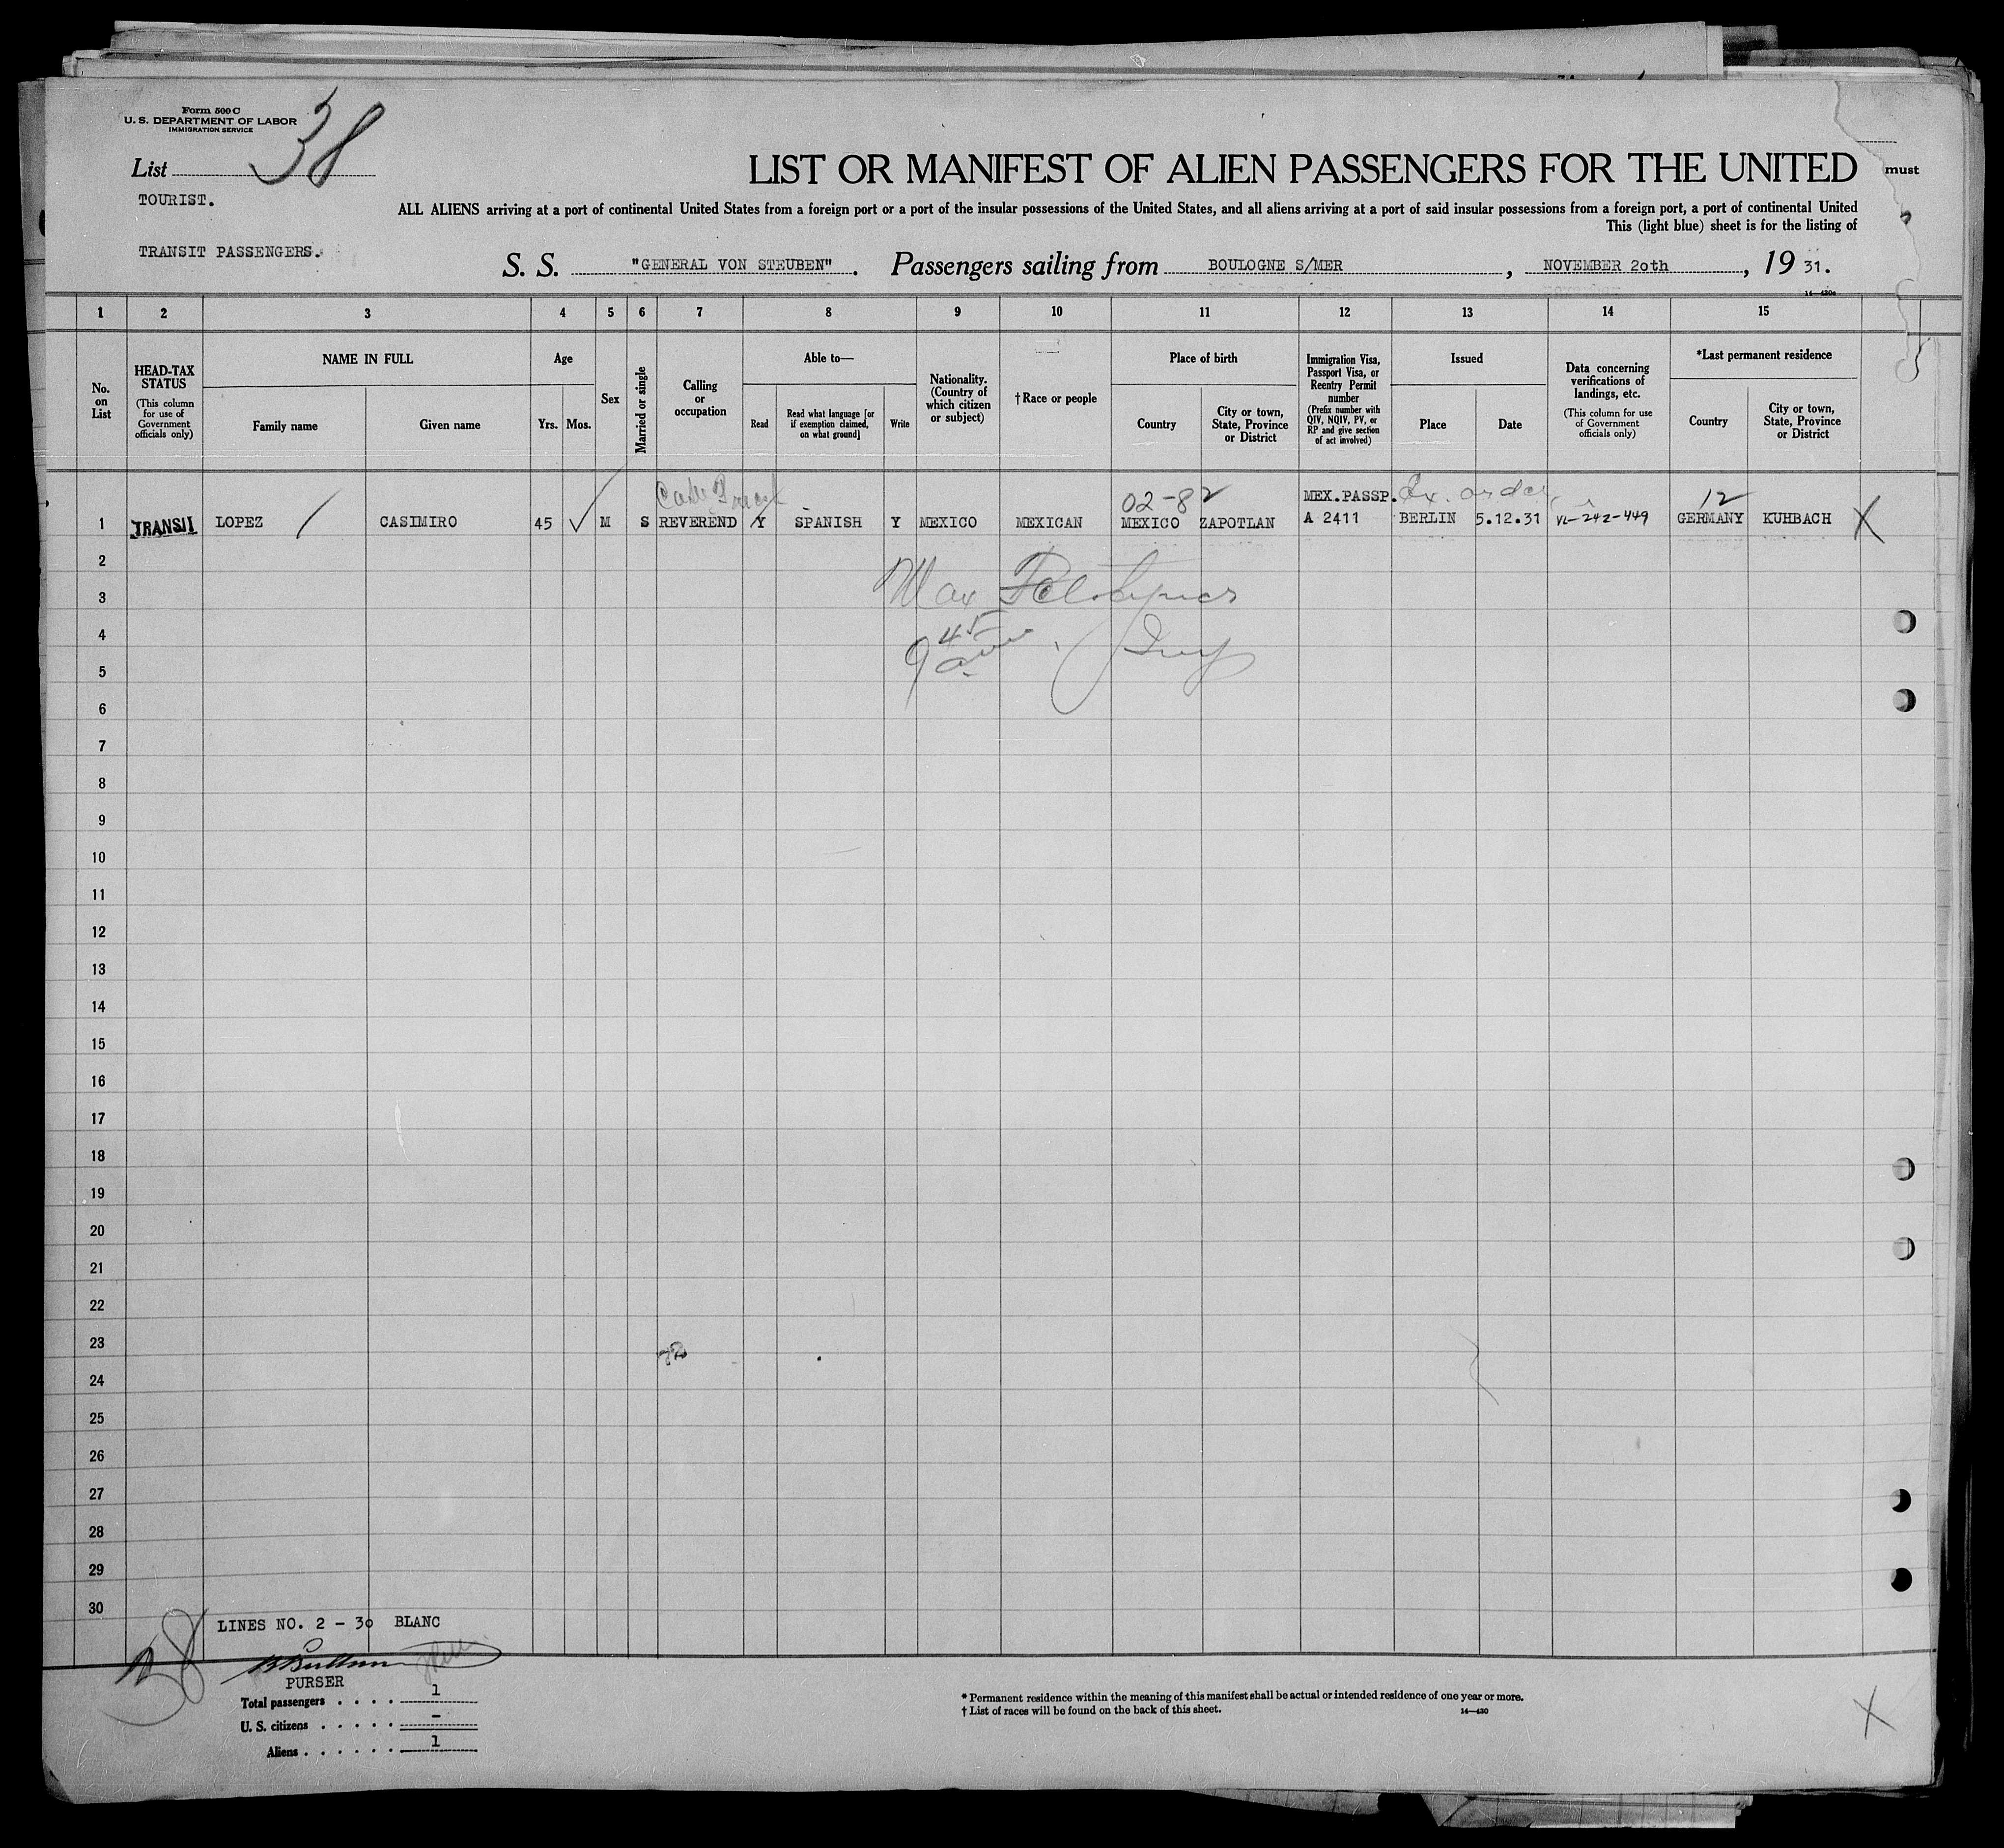 Form 500 C
U. S. DEPARTMENT OF LABOR
IMMIGRATION SERVICE
List 38
TOURIST.
TRANSIT PASSENGERS.
LIST OR MANIFEST OF ALIEN PASSENGERS FOR THE UNITED
must
ALL ALIENS arriving at a port of continental United States from a foreign port or a port of the insular possessions of the United States, and all aliens arriving at a port of said insular possessions from a foreign port, a port of continental United
This (light blue) sheet is for the listing of
S. S. "GENERAL VON STEUBEN". Passengers sailing from BOULOGNE S/MER, NOVEMBER 2oth, 19 31.
14—430c
1 2 3 4 5 6 7 8 9 10 11 12 13 14 15
No. on List
HEAD-TAX STATUS
(This column for use of Government officials only)
NAME IN FULL
Family name
Given name
Age
Yrs. Mos.
Sex
Married or single
Calling or occupation
Able to—
Read
Read what language [or if exemption claimed, on what ground]
Write
Nationality. (Country of which citizen or subject)
† Race or people
Place of birth
Country
City or town, State, Province or District
Immigration Visa, Passport Visa, or Reentry Permit number
(Prefix number with QIV, NQIV, PV, or RP and give section of act involved)
Issued
Place
Date
Data concerning verifications of landings, etc.
(This column for use of Government officials only)
*Last permanent residence
Country
City or town, State, Province or District
02-82 MEX.PASSP. Ex. order 12
1 TRANSIT LOPEZ CASIMIRO 45 M S REVEREND Y SPANISH Y MEXICO MEXICAN MEXICO ZAPOTLAN A 2411 BERLIN 5.12.31 VL-242-449 GERMANY KUHBACH X
2
Max
3
4
9 45 am
5
6
7
8
9
10
11
12
13
14
15
16
17
18
19
20
21
22
23
24
25
26
27
28
29
30
LINES NO. 2 - 30 BLANC
38
PURSER
Total passengers . . . . 1
U. S. citizens . . . . . -
Aliens . . . . . . 1
* Permanent residence within the meaning of this manifest shall be actual or intended residence of one year or more.
† List of races will be found on the back of this sheet.
14—430
X